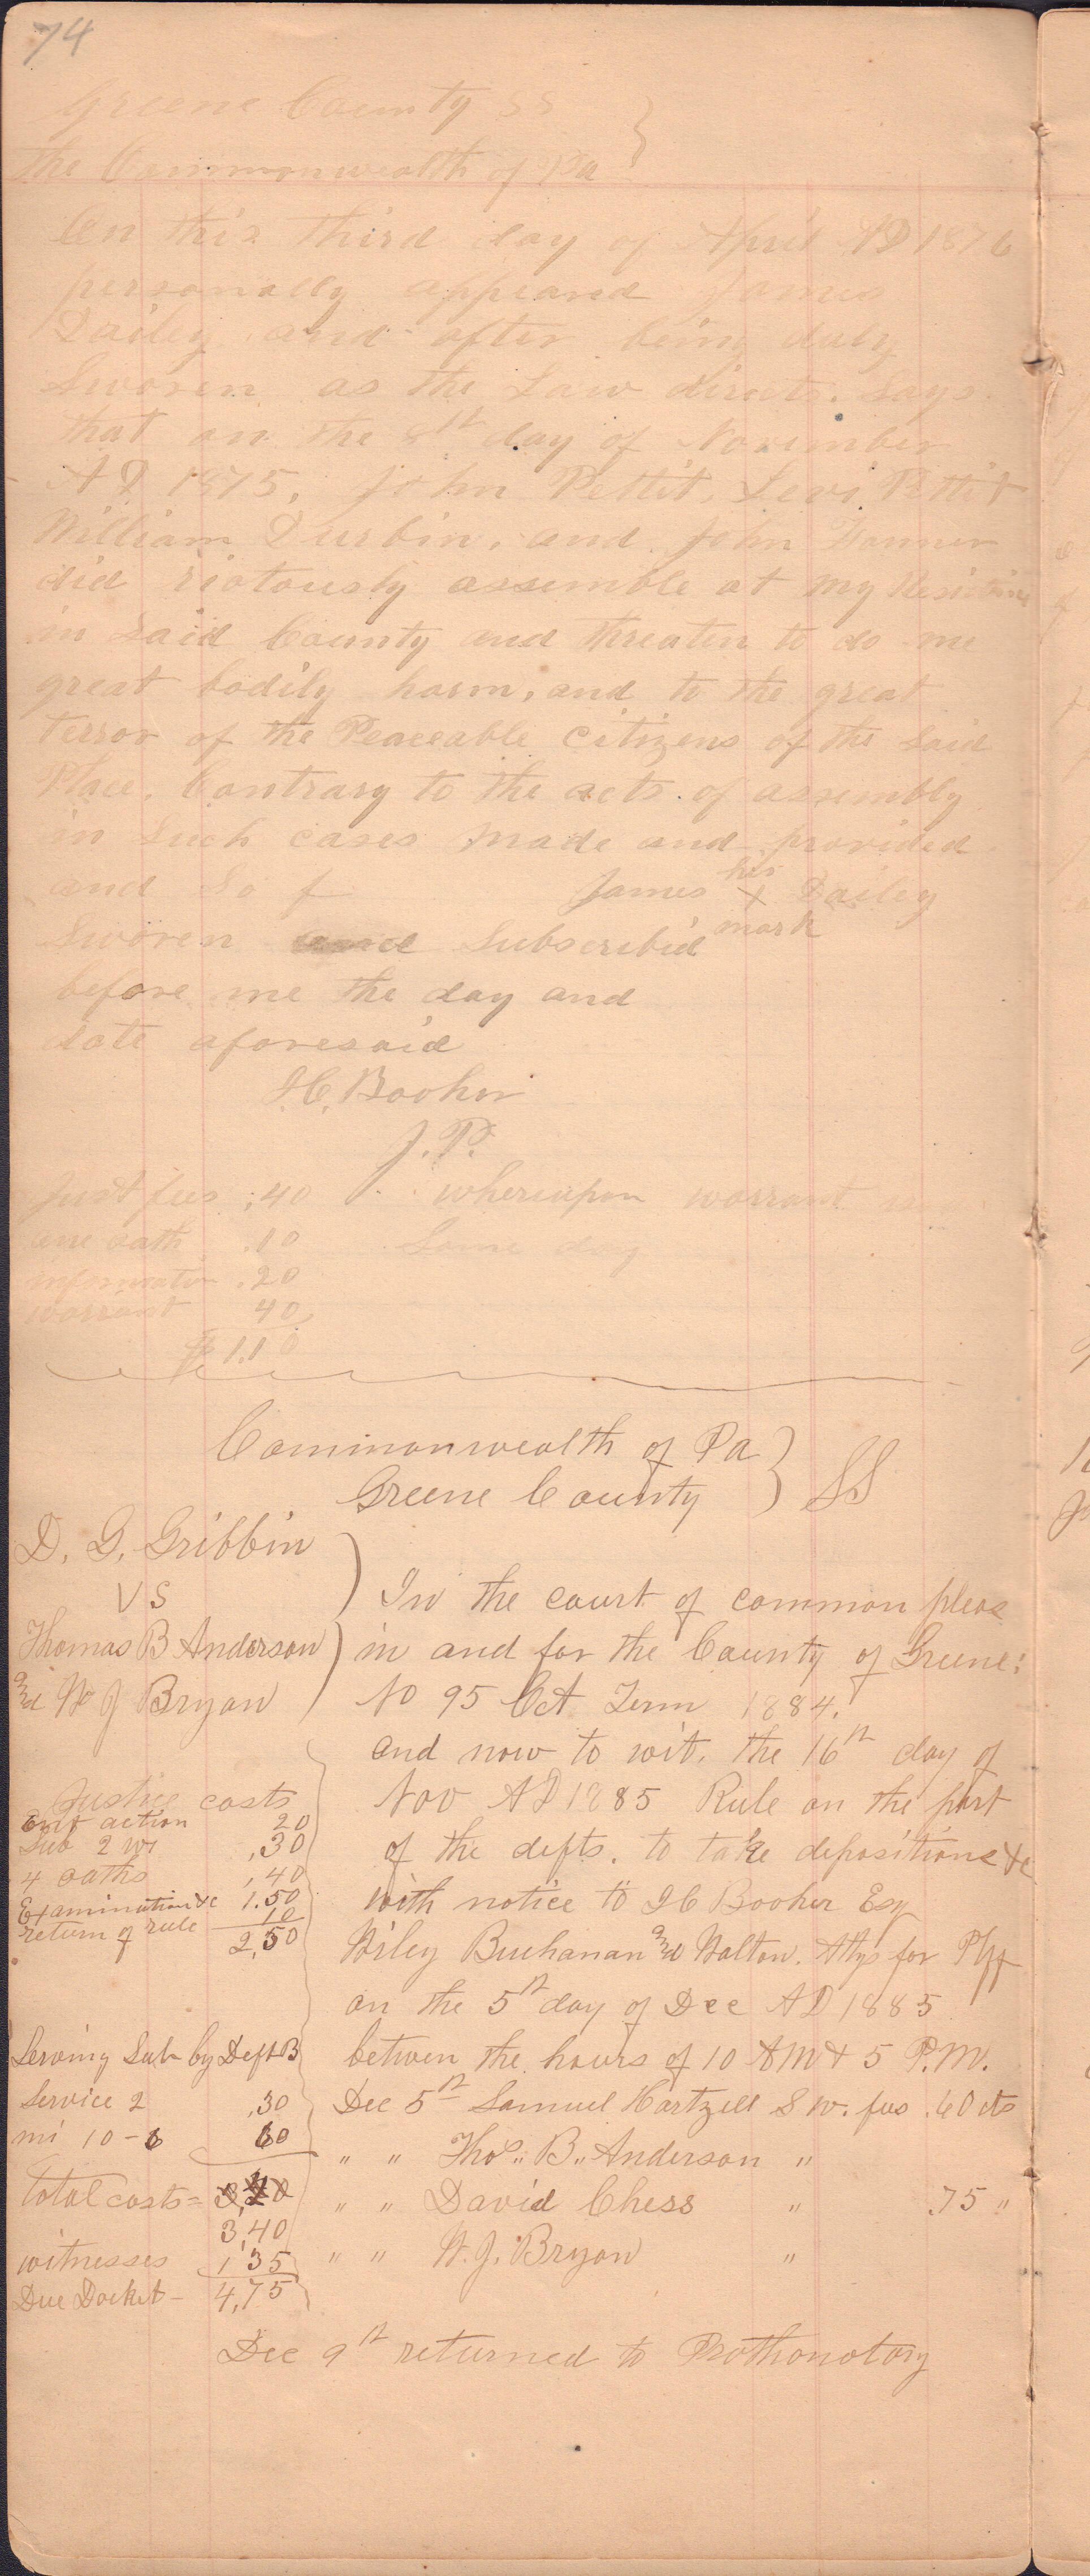 74
Greene County SS
The Commonwealth of Pa
On this third day of April AD 1876
personally appeard James
Dailey and after being duly
Sworen as the Law directs. Says
that on the 8th day of November
A D 1875, John Pettit, Levi Pettit
William Durbin, and John
did riotously assemble at my
in said County and threaten to do me
great bodily harm, and to the great
terror of the Peaceable citizens of the said
Place, Contrary to the acts of assembly
in such cases made and provided
and So f James his x mark Dailey
Sworen and Subscribid
before me the day and
date aforesaid
I C. Booher
J. P.
Just fees .40 whereupon warrant
one oath .10 Same day
information .20
warrant 40
$1.10
Commonwealth of Pa
Greene County SS
D. G. Gribbin
VS
Thomas B Anderson
and W J Bryan
In the court of common pleas
in and for the County of Greene:
No 95 Oct Term 1884.
and now to wit. the 16th day of
Nov AD 1885 Rule on the part
of the defts. to take depositions &c
with notice to I C Booher Esq
Wiley Buchanan and Walton. Attys for Plff
on the 5th day of Dec AD 1885
betwen the hours of 10 AM & 5 P.M.
Dec 5th Samuel Hartzell S w. fees .60 cts
" " Thos. B. Anderson "
" " David Chess " .75 "
" " W. J. Bryan "
Justice costs
action 20
Sub 2 ,30
4 oaths ,40
Examination &c 1.50
return of rule 10
2,50
Serving Sub by Deft B
Service 2 ,30
mi 10-6 60
Total costs =
3,40
witnesses 1 35
Due Docket - 4,75
Dec 9th returned to Prothonotary